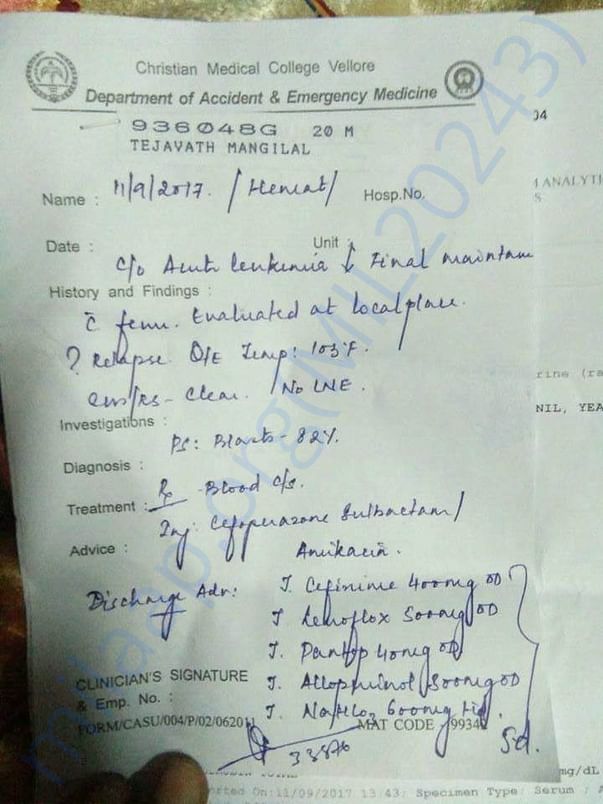 Christian Medical College Vellore
Department of Accident & Emergency Medicine
936048G 20 M
TEJAVATH MANGILAL
Name : 11/9/2017. / Hemat/ Hosp.No.
Date : Unit :
c/o Acute leukemia ↓ Final maintain
History and Findings :
c̄ fever. Evaluated at local place.
? Relapse. O/E Temp: 103°F.
CVS/RS - Clear. / No LNE.
Investigations :
PS: Blasts - 82%.
Diagnosis :
Treatment : Rx Blood c/s.
Inj. Cefoperazone Sulbactam/
Advice : Amikacin.
Discharge Adv: T. Cefixime 400mg OD
T. Levoflox 500mg OD
T. Pantop 40mg OD
CLINICIAN'S SIGNATURE T. Allopurinol 300mg OD
& Emp. No. :
T. NaHCO3 600mg tid.
FORM/CASU/004/P/02/062011 MAT CODE 99342
33876 5d.
04
ANALYTI
S
rine (ra
NIL, YEA
mg/dL
rted On:11/09/2017 13:43; Specimen Type: Serum ; A
milaap.org(MIL20243)